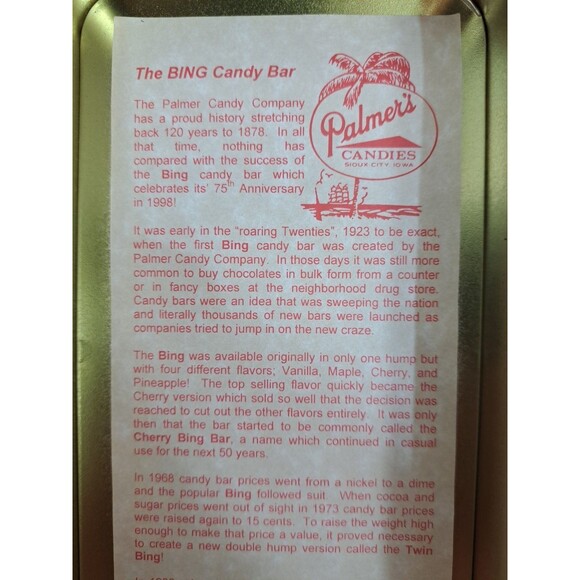 The BING Candy Bar
Palmer's
CANDIES
SIOUX CITY, IOWA
The Palmer Candy Company
has a proud history stretching
back 120 years to 1878. In all
that time, nothing has
compared with the success of
the Bing candy bar which
celebrates its' 75th Anniversary
in 1998!
It was early in the "roaring Twenties", 1923 to be exact,
when the first Bing candy bar was created by the
Palmer Candy Company. In those days it was still more
common to buy chocolates in bulk form from a counter
or in fancy boxes at the neighborhood drug store.
Candy bars were an idea that was sweeping the nation
and literally thousands of new bars were launched as
companies tried to jump in on the new craze.
The Bing was available originally in only one hump but
with four different flavors; Vanilla, Maple, Cherry, and
Pineapple! The top selling flavor quickly became the
Cherry version which sold so well that the decision was
reached to cut out the other flavors entirely. It was only
then that the bar started to be commonly called the
Cherry Bing Bar, a name which continued in casual
use for the next 50 years.
In 1968 candy bar prices went from a nickel to a dime
and the popular Bing followed suit. When cocoa and
sugar prices went out of sight in 1973 candy bar prices
were raised again to 15 cents. To raise the weight high
enough to make that price a value, it proved necessary
to create a new double hump version called the Twin
Bing!